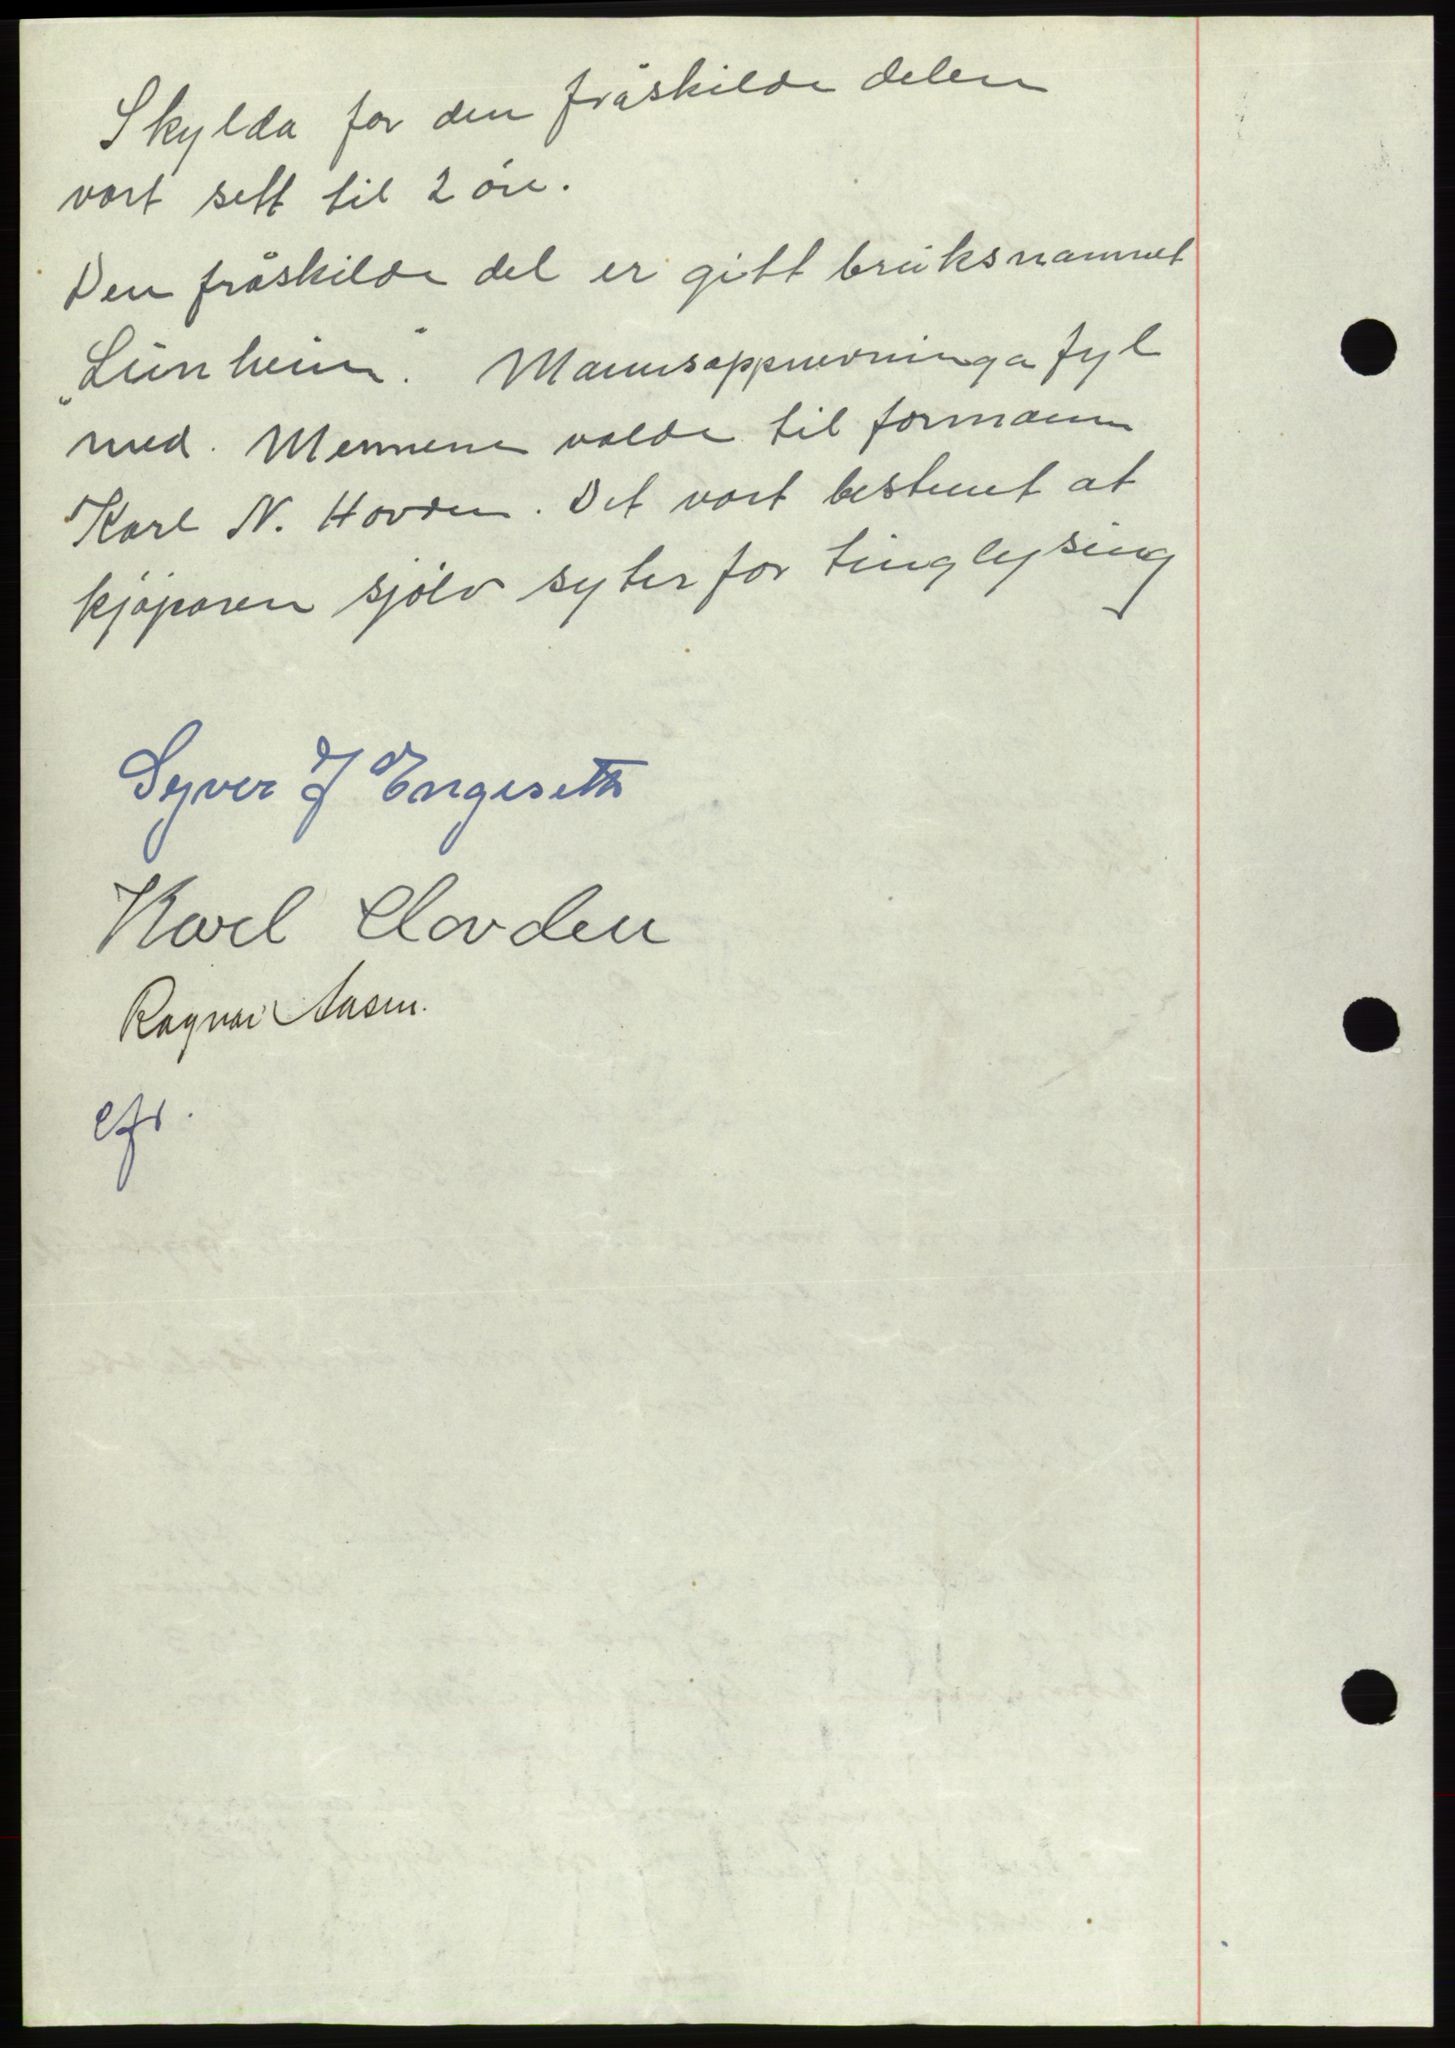 Skylda for den fråskilde delen
vart sett til 2 öre.
Den fråskilde del er gitt bruksnamnet
„Lünheim". Mannsoppnevninga fyl
med. Mennene valde til formann
Karl N. Hovden. Det vart bestemt at
kjöparen sjölv syter for tinglysing
Syver J Engeseth
Karl Hovden
Ragnar Aasen.